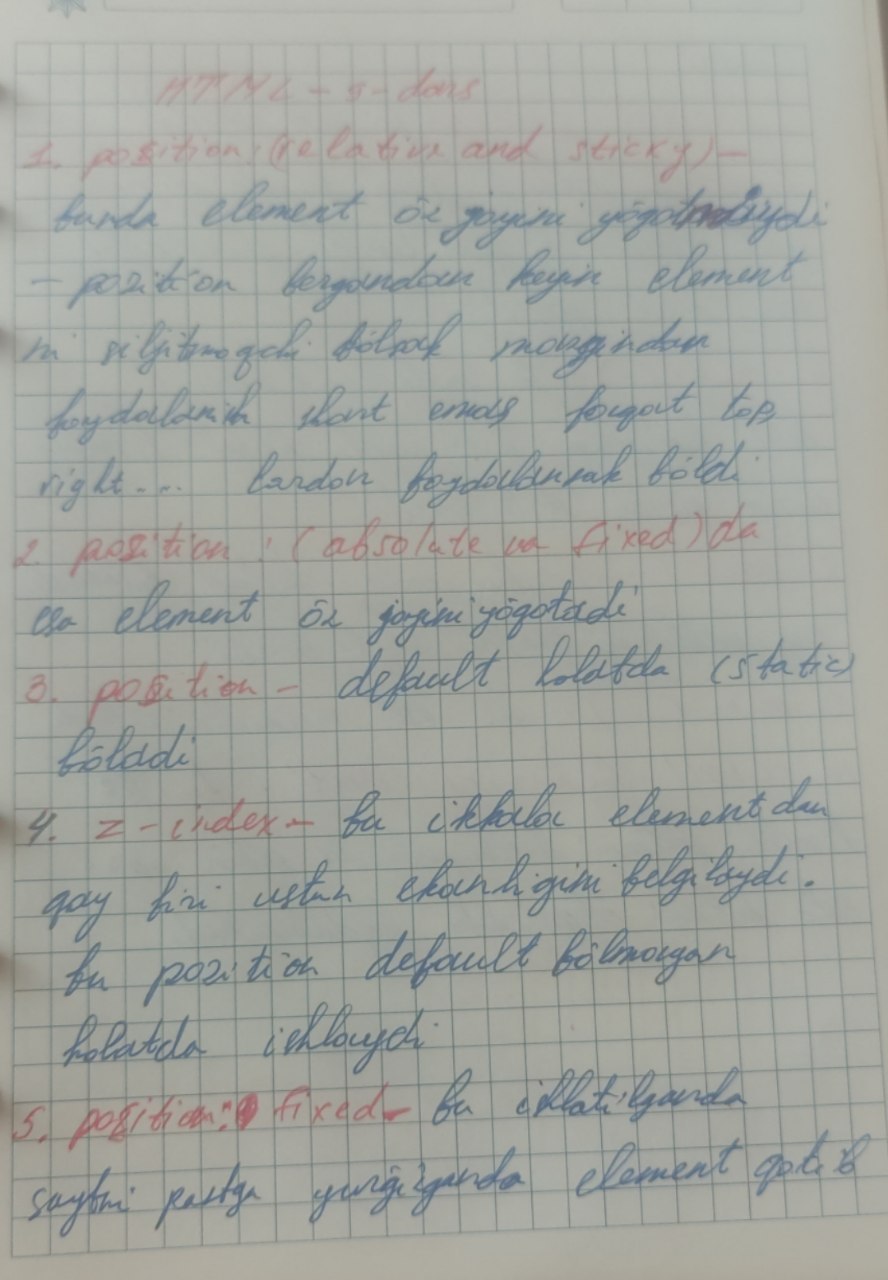 HTML - 9-dars
1. position: (relative and sticky) -
bunda element ōz joyini yōqotmaydi
- pozition bergandan keyin element
ni siljitmoqchi bōlsak margindan
foydalanish shart emas faqat top,
right.... lardan foydalansak bōldi
2. position : (absolute va fixed) da
esa element ōz joyini yōqotadi
3. position - default holatda (static)
bōladi
4. z - index - bu ikkala elementdan
qay biri ustun ekanligini belgilaydi.
bu pozition default bōlmagan
holatda ishlaydi
5. position: fixed - bu ishlatilganda
saytni pastga yurg'izganda element qotib